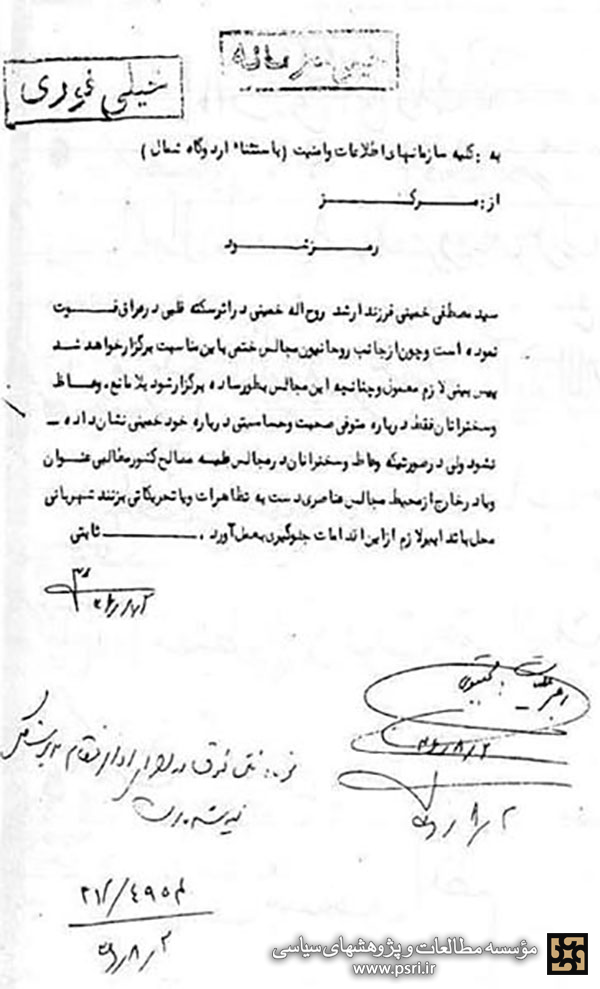 خیلی محرمانه
خیلی فوری
به : کلیه سازمانهای اطلاعات وامنیت (باستثناء اردوگاه شمال )
از : مــرکــز
رمــز شــود
سید مصطفی خمینی فرزند ارشد روح اله خمینی دراثرسکته قلبی درعراق فــوت
نموده است وچون ازجانب روحانیون مجالس ختمی باین مناسبت برگزارخواهد شد
پیش بینی لازم معمول وچنانچه این مجالس بطورساده برگزارشود بلامانع ، وعــاظ
وسخنرانان فقط درباره متوفی صحبت وحساسیتی درباره خود خمینی نشان داده ـ
نشود ولی درصورتیکه وعاظ وسخنرانان درمجالس علیــه مصالح کشورمطالبی عنــوان
ویا درخارج ازمحیط مجالس عناصری دست به تظاهرات ویا تحریکاتی بزنند شهربانی
محل باتدابیرلازم ازاین اقدامات جلوگیری بعمل آورد . ثابتی
۳۶/۸/۲
۳۶/۸/۲
نیشه
۲۱/۴۹۵۲
۳۶/۸/۲
مؤسسه مطالعات و پژوهشهای سیاسی
www.psri.ir